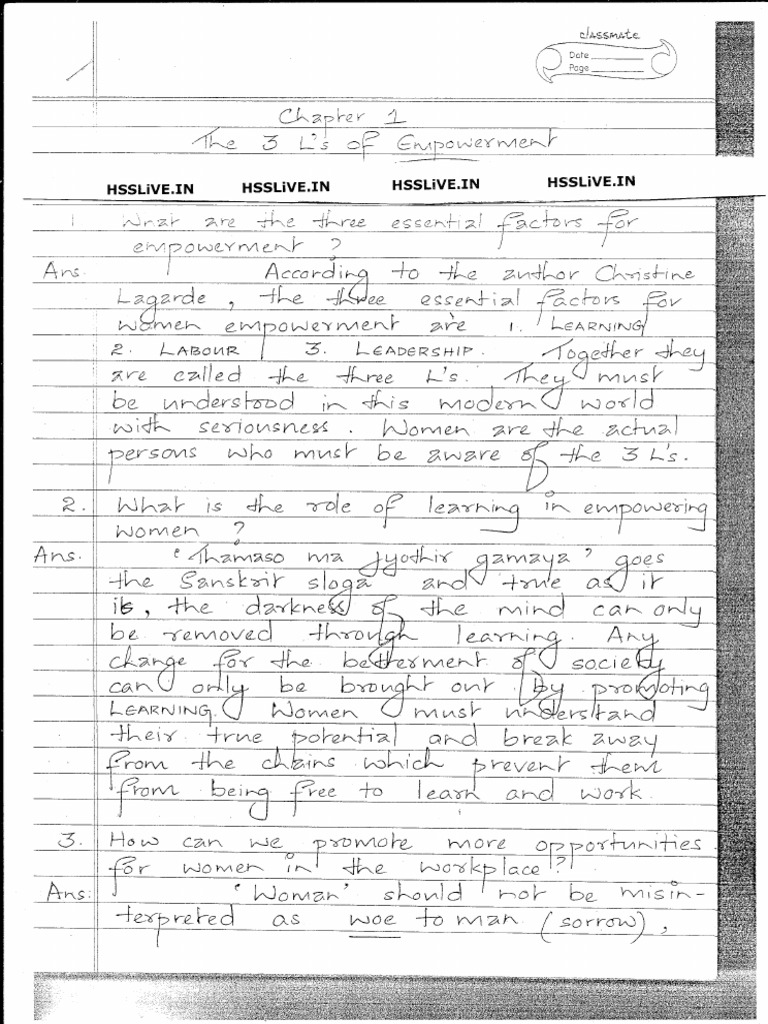 classmate
Date
Page
Chapter 1
The 3 L's of Empowerment
HSSLiVE.IN HSSLiVE.IN HSSLiVE.IN HSSLiVE.IN
1 What are the three essential factors for
empowerment ?
Ans. According to the author Christine
Lagarde, the three essential factors for
women empowerment are 1. LEARNING
2. LABOUR 3. LEADERSHIP. Together they
are called the three L's. They must
be understood in this modern world
with seriousness. Women are the actual
persons who must be aware of the 3 L's.
2. What is the role of learning in empowering
women ?
Ans. 'Thamaso ma jyothir gamaya' goes
the Sanskrit sloga and true as it
is, the darkness of the mind can only
be removed through learning. Any
change for the betterment of society
can only be brought out by promoting
LEARNING. Women must understand
their true potential and break away
from the chains which prevent them
from being free to learn and work
3. How can we promote more opportunities
for women in the workplace?
Ans: 'Woman' should not be misin-
terpreted as woe to man (sorrow),